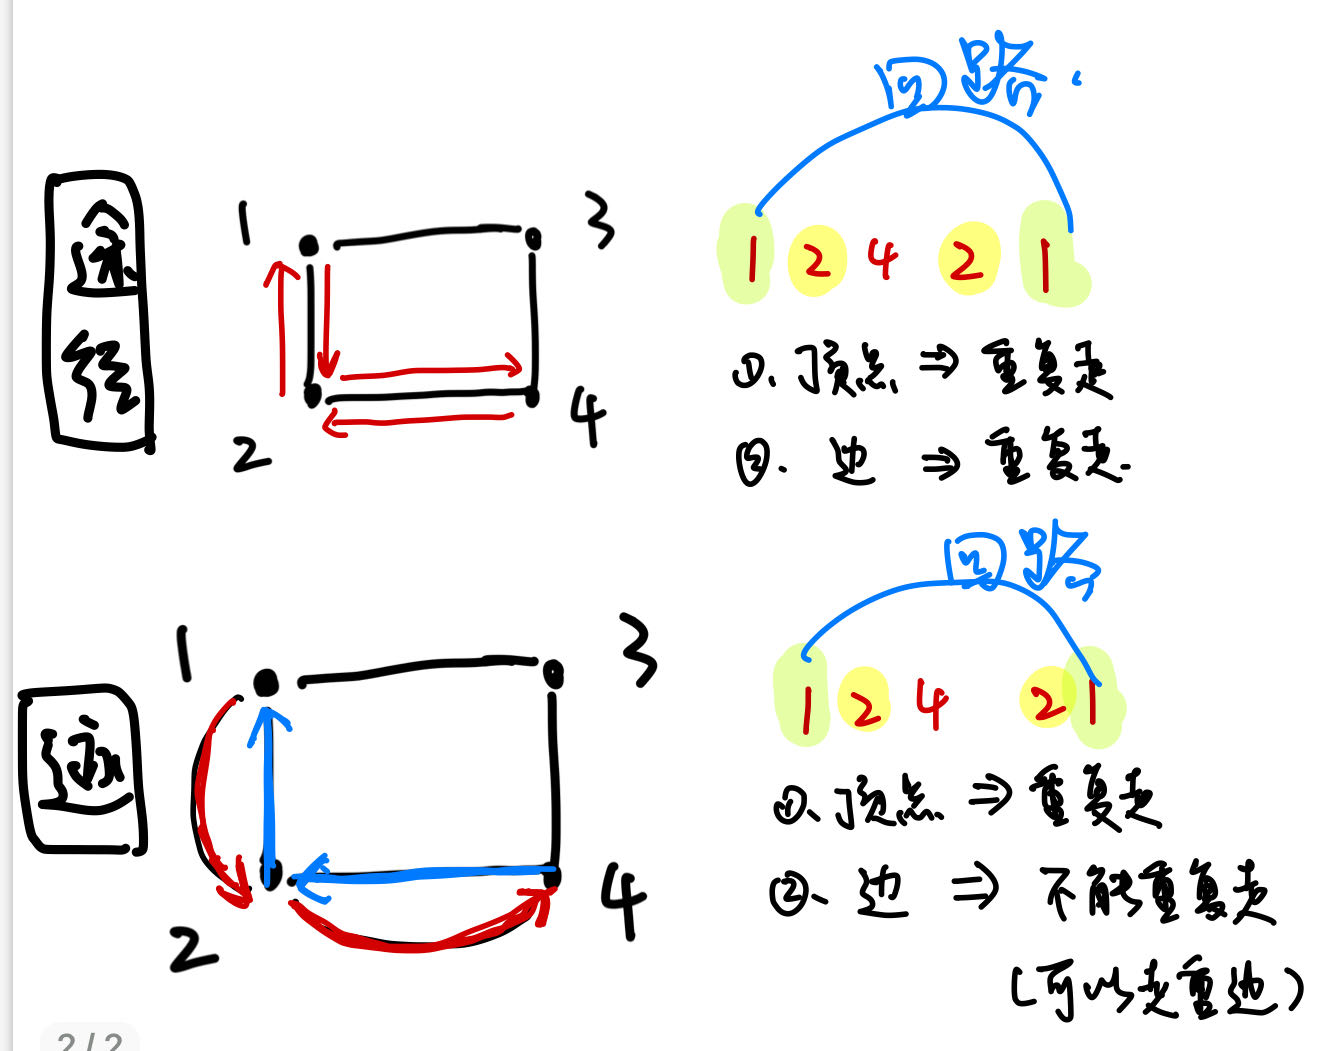 回路.
途
径
1
3
2
4
1 2 4 2 1
①. 顶点 ⇒ 重复走
②. 边 ⇒ 重复走.
回路
迹
1
3
2
4
1 2 4 2 1
①、顶点 ⇒ 重复走
②、边 ⇒ 不能重复走
(可以走重边)
2 / 2